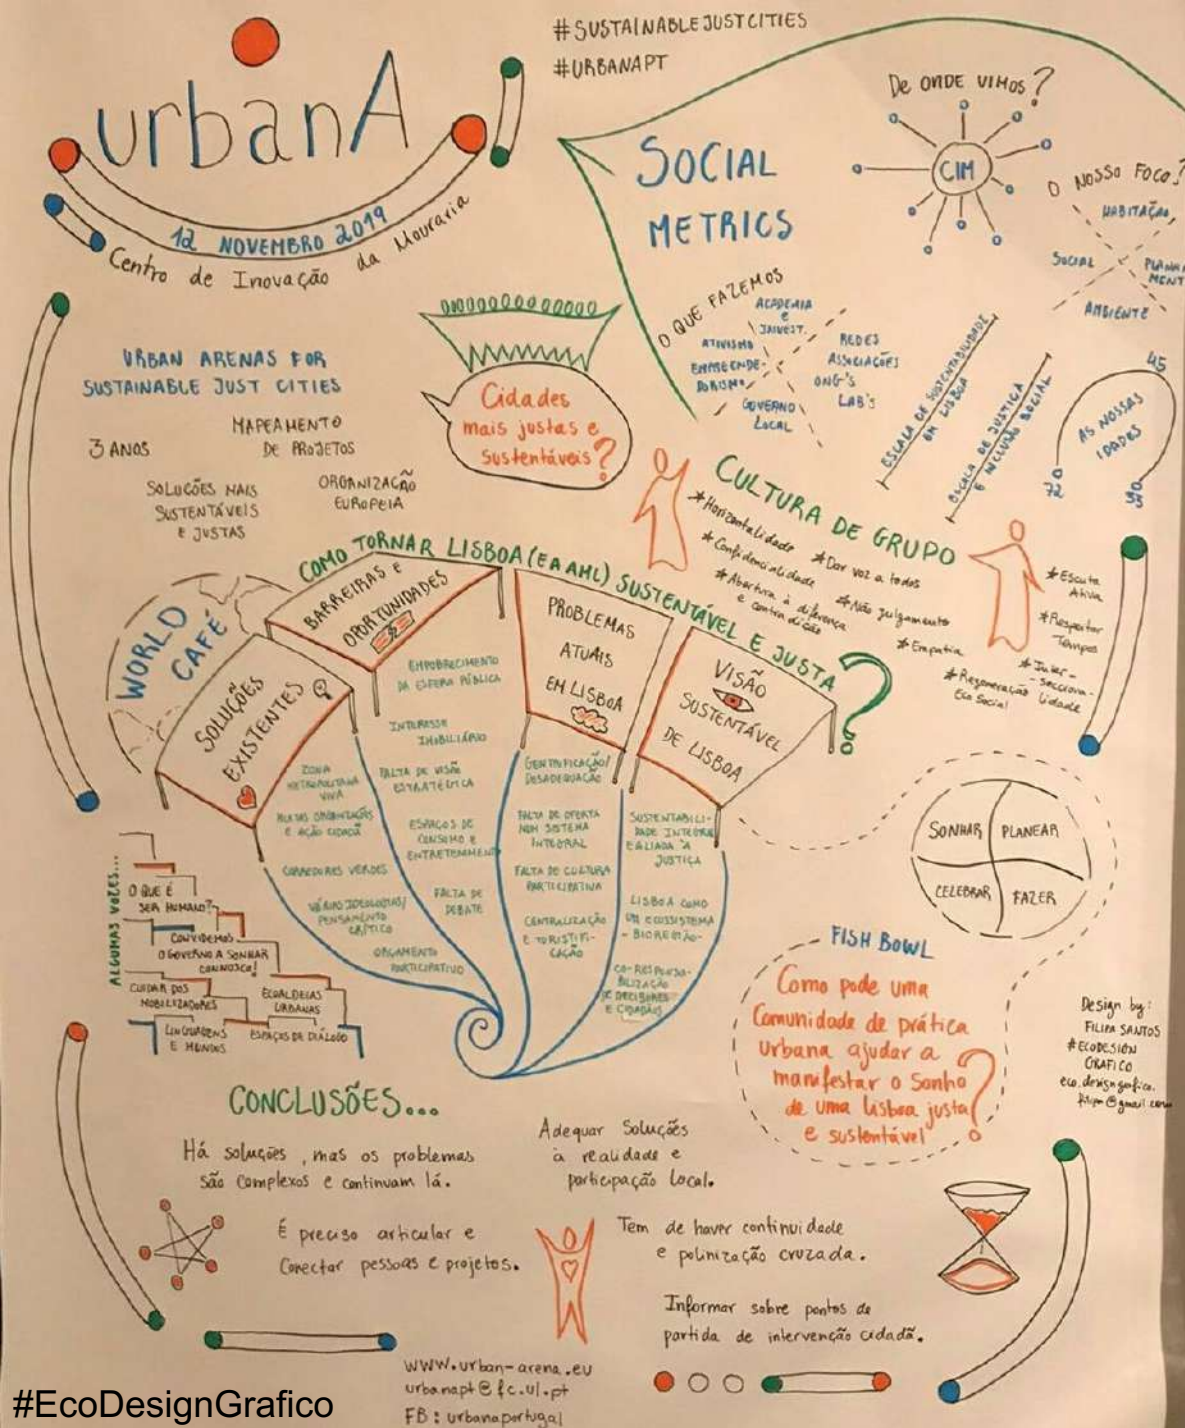 #SUSTAINABLEJUSTCITIES
#URBANAPT
urbanA
12 NOVEMBRO 2019
Centro de Inovação da Mouraria
SOCIAL
METRICS
De ONDE VIMOS?
CIM
O NOSSO FOCO?
HABITAÇÃO
SOCIAL
AMBIENTE
O QUE FAZEMOS
ACADEMIA
E
INVEST.
ATIVISMO
EMPREENDE-
DORISMO
REDES
ASSOCIAÇÕES
ONG'S
LAB'S
GOVERNO
LOCAL
ESCALA DE SUSTENTABILIDADE
EM LISBOA
ESCALA DE JUSTIÇA
E INCLUSÃO SOCIAL
45
AS NOSSAS
IDADES
72
URBAN ARENAS FOR
SUSTAINABLE JUST CITIES
3 ANOS
MAPEAMENTO
DE PROJETOS
SOLUÇÕES MAIS
SUSTENTÁVEIS
E JUSTAS
ORGANIZAÇÃO
EUROPEIA
Cidades
mais justas e
sustentáveis?
CULTURA DE GRUPO
* Horizontalidade
* Confidencialidade
* Abertura à diferença
e contradição
* Dar voz a todos
* Não julgamento
* Empatia
* Regeneração
Eco Social
* Escuta
Ativa
* Respeitar
Tempos
* Inter-
-secciona-
lidade
COMO TORNAR LISBOA (E A AML) SUSTENTÁVEL E JUSTA?
WORLD
CAFÉ
SOLUÇÕES
EXISTENTES
BARREIRAS E
OPORTUNIDADES
PROBLEMAS
ATUAIS
EM LISBOA
VISÃO
SUSTENTÁVEL
DE LISBOA
ZONA
METROPOLITANA
VIVA
MUITAS ORGANIZAÇÕES
E AÇÃO CIDADÃ
CORREDORES VERDES
VÁRIAS IDEOLOGIAS/
PENSAMENTO
CRÍTICO
ORÇAMENTO
PARTICIPATIVO
EMPOBRECIMENTO
DA ESFERA PÚBLICA
INTERESSE
IMOBILIÁRIO
FALTA DE VISÃO
ESTRATÉGICA
ESPAÇOS DE
CONSUMO E
ENTRETENIMENTO
FALTA DE
DEBATE
GENTRIFICAÇÃO/
DESADEQUAÇÃO
FALTA DE OFERTA
NUM SISTEMA
INTEGRAL
FALTA DE CULTURA
PARTICIPATIVA
CENTRALIZAÇÃO
E TURISTIFI-
CAÇÃO
SUSTENTABILI-
DADE INTEGRAL
E ALIADA À
JUSTIÇA
LISBOA COMO
UM ECOSSISTEMA
- BIOREGIÃO -
CO-RESPONSA-
BILIZAÇÃO
DE DECISORES
E CIDADÃOS
SONHAR
PLANEAR
CELEBRAR
FAZER
ALGUMAS VOZES...
O QUE É
SER HUMANO?
CONVIDEMOS
O GOVERNO A SONHAR
CONNOSCO!
CUIDAR DOS
MOBILIZADORES
ECOALDEIAS
URBANAS
LINGUAGENS
E MUNDOS
ESPAÇOS DE DIÁLOGO
FISH BOWL
Como pode uma
Comunidade de prática
urbana ajudar a
manifestar o Sonho
de uma Lisboa justa
e sustentável?
Design by:
FILIPA SANTOS
#ECODESIGN
GRAFICO
eco.designgrafico.
filipa@gmail.com
CONCLUSÕES...
Há soluções, mas os problemas
são complexos e continuam lá.
Adequar Soluções
à realidade e
participação local.
É preciso articular e
Conectar pessoas e projetos.
Tem de haver continuidade
e polinização cruzada.
Informar sobre pontos de
partida de intervenção cidadã.
WWW.urban-arena.eu
urbanapt@fc.ul.pt
FB: urbanaportugal
#EcoDesignGrafico